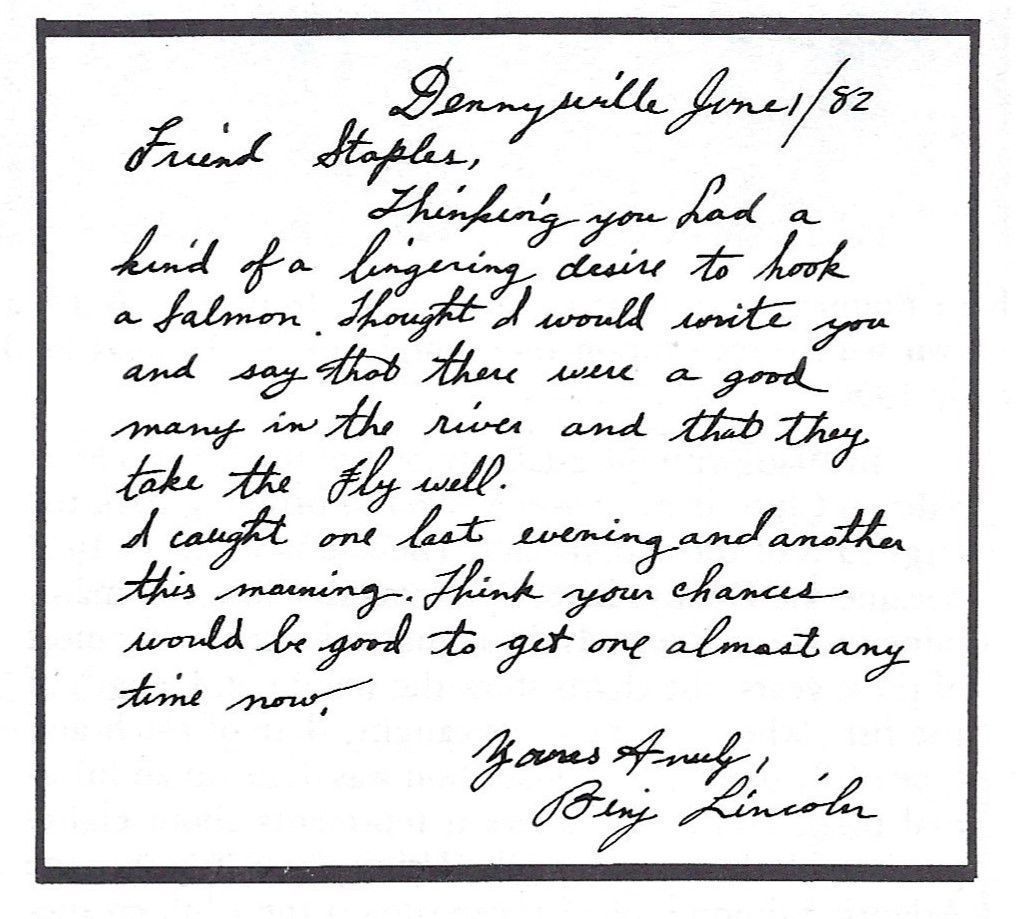 Dennysville June 1/82
Friend Staples,
Thinking you had a
kind of a lingering desire to hook
a Salmon. Thought I would write you
and say that there were a good
many in the river and that they
take the Fly well.
I caught one last evening and another
this morning. Think your chances
would be good to get one almost any
time now.
Yours Truly,
Benj Lincoln